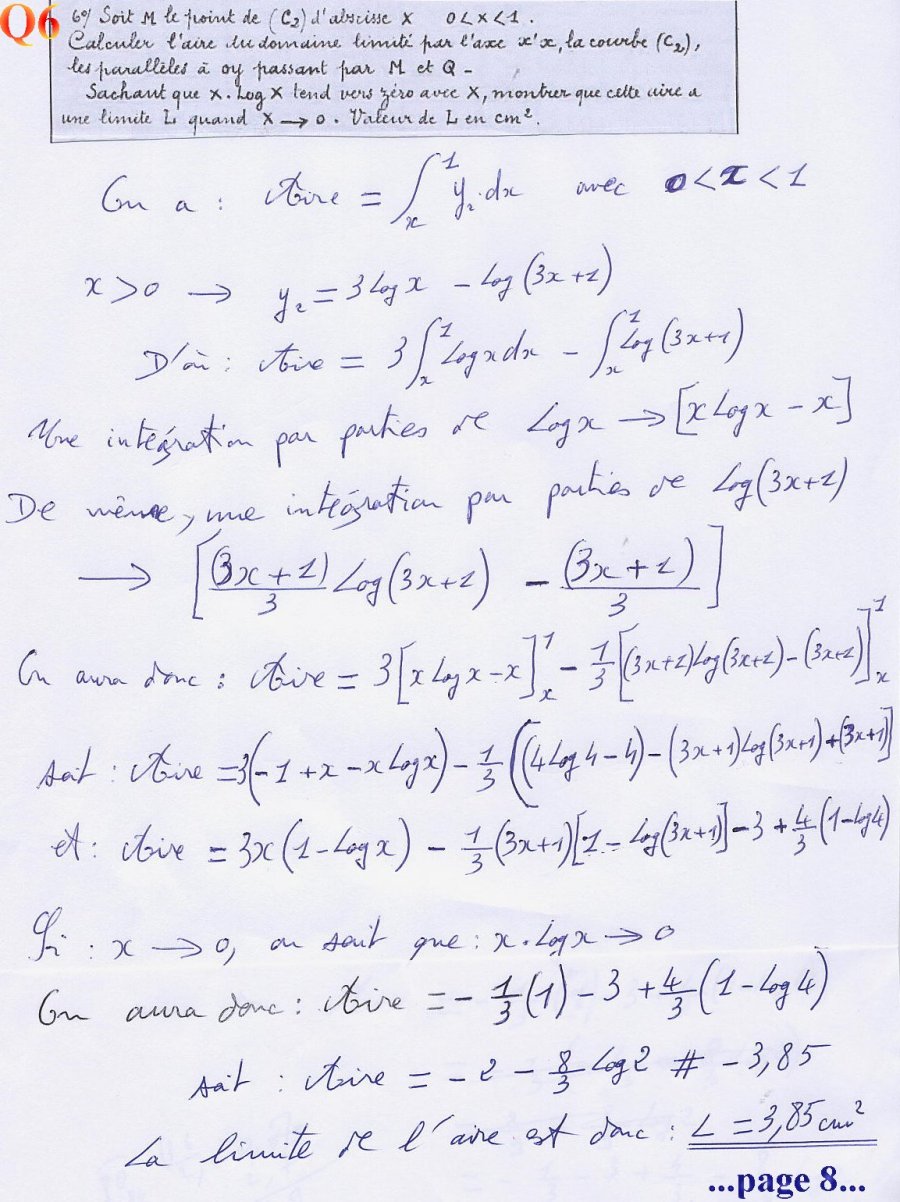 Q6 6°/ Soit M le point de (C₂) d'abscisse X 0 < X < 1.
Calculer l'aire du domaine limité par l'axe x'x, la courbe (C₂),
les parallèles à oy passant par M et Q -
Sachant que X . Log X tend vers zéro avec X, montrer que cette aire a
une limite L quand X → 0. Valeur de L en cm².
On a : Aire = ∫ₓ¹ y₂ dx avec 0 < x < 1
x > 0 → y₂ = 3 Log x - Log (3x+1)
D'où : Aire = 3 ∫ₓ¹ Log x dx - ∫ₓ¹ Log (3x+1)
Une intégration par parties de Log x → [x Log x - x]
De même, une intégration par parties de Log (3x+1)
→ [(3x+1)/3 Log (3x+1) - (3x+1)/3]
On aura donc : Aire = 3 [x Log x - x]ₓ¹ - 1/3 [(3x+1) Log (3x+1) - (3x+1)]ₓ¹
soit : Aire = 3(-1 + x - x Log x) - 1/3 ((4 Log 4 - 4) - (3x+1) Log (3x+1) + (3x+1)]
et : Aire = 3x (1 - Log x) - 1/3 (3x+1) [1 - Log (3x+1)] - 3 + 4/3 (1 - Log 4)
Si : x → 0, on sait que : x . Log x → 0
On aura donc : Aire = - 1/3 (1) - 3 + 4/3 (1 - Log 4)
soit : Aire = - 2 - 8/3 Log 2 # - 3,85
La limite de l'aire est donc : L = 3,85 cm²
...page 8...